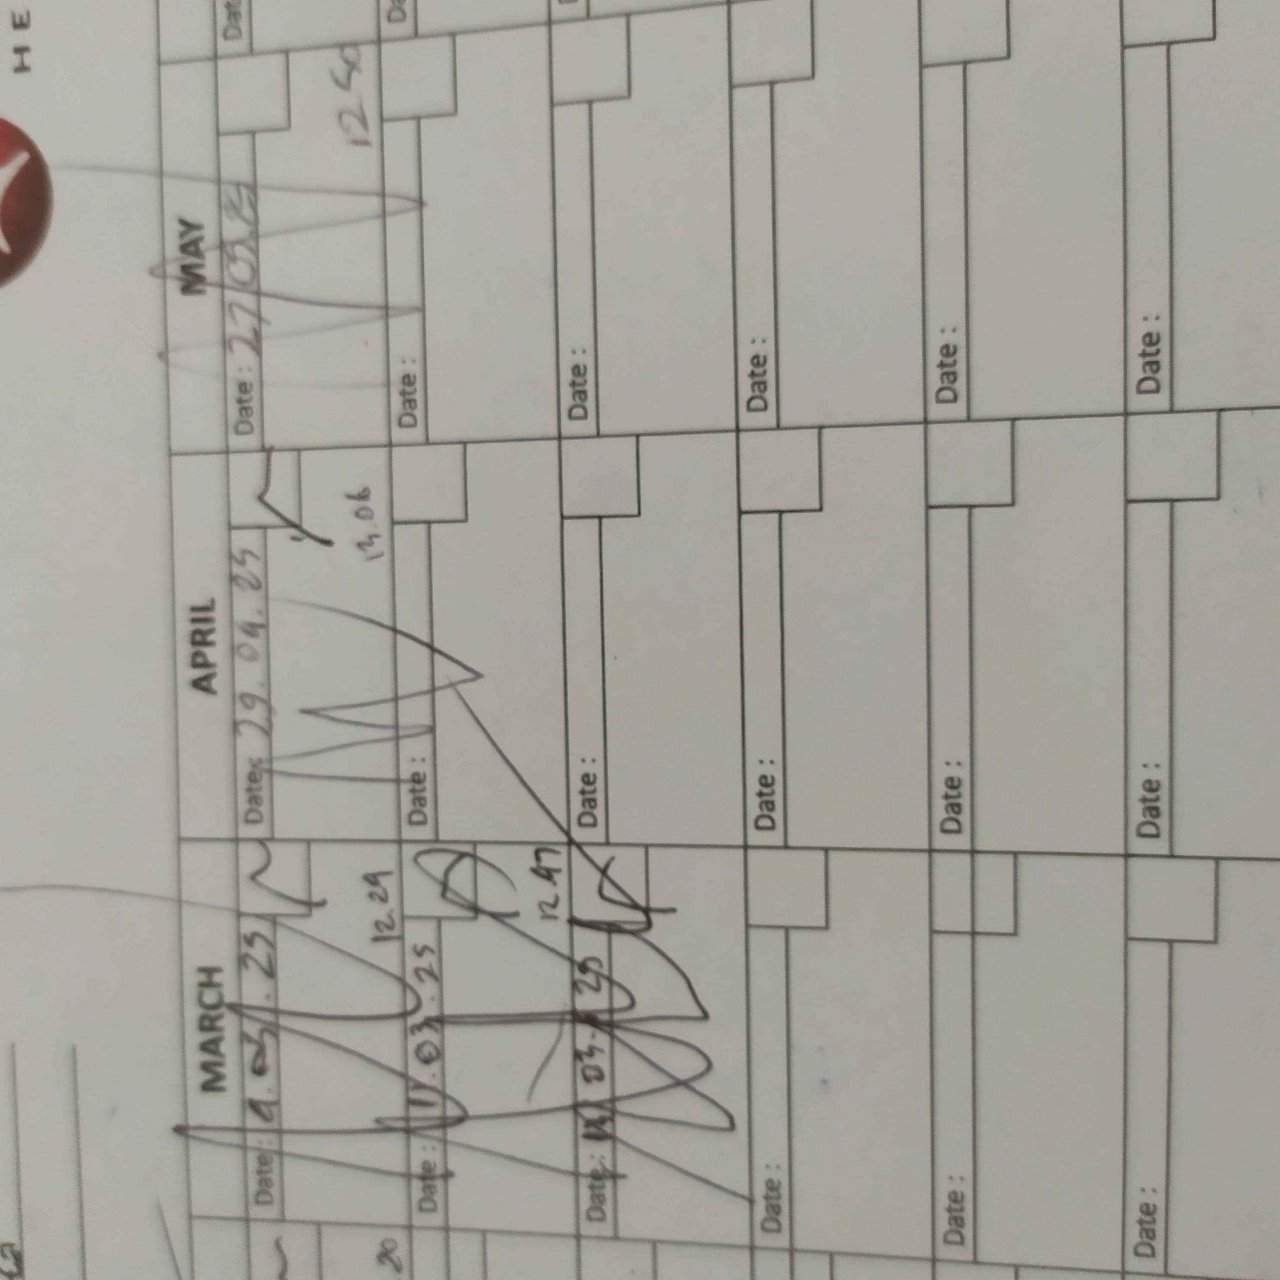 HE
MARCH APRIL MAY
Date: 4.03.25 Date: 29.04.25 Date: 27.05.25 Dat
12.29 13.06 12 50
Date: 11.03.25 Date: Date: Da
12.47
Date: 03.25 Date: Date:
Date: Date: Date:
Date: Date: Date:
Date: Date: Date:
20